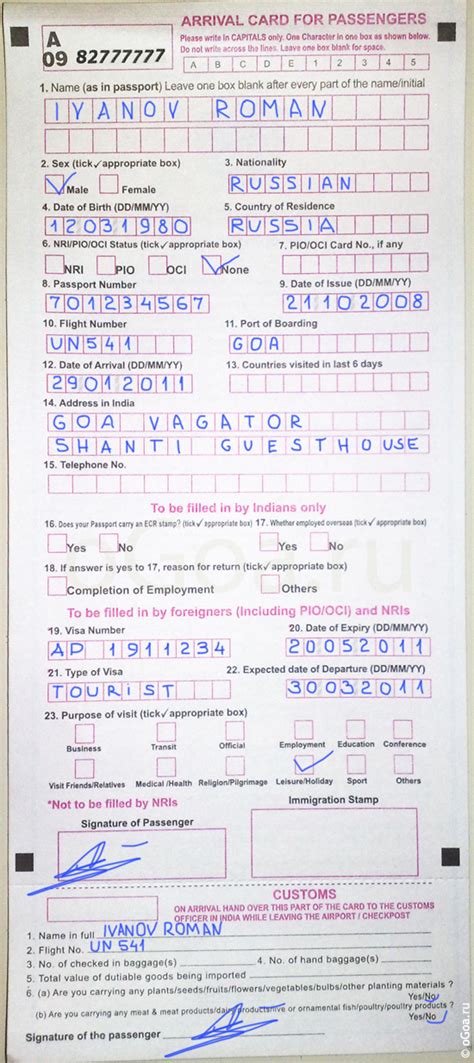 ARRIVAL CARD FOR PASSENGERS
A
09 82777777
Please write in CAPITALS only. One Character in one box as shown below.
Do not write across the lines. Leave one box blank for space.
A B C D E 1 2 3 4 5
1. Name (as in passport) Leave one box blank after every part of the name/initial
IVANOV ROMAN
2. Sex (tick✓appropriate box) 3. Nationality
Male Female RUSSIAN
4. Date of Birth (DD/MM/YY) 5. Country of Residence
12031980 RUSSIA
6. NRI/PIO/OCI Status (tick✓appropriate box) 7. PIO/OCI Card No., if any
NRI PIO OCI None
8. Passport Number 9. Date of Issue (DD/MM/YY)
701234567 21102008
10. Flight Number 11. Port of Boarding
UN541 GOA
12. Date of Arrival (DD/MM/YY) 13. Countries visited in last 6 days
29012011
14. Address in India
GOA VAGATOR
SHANTI GUESTHOUSE
15. Telephone No.
To be filled in by Indians only
16. Does your Passport carry an ECR stamp? (tick✓appropriate box) 17. Whether employed overseas (tick✓appropriate box)
Yes No Yes No
oGoa.ru
18. If answer is yes to 17, reason for return (tick✓appropriate box)
Completion of Employment Others
To be filled in by foreigners (Including PIO/OCI) and NRIs
19. Visa Number 20. Date of Expiry (DD/MM/YY)
AP 1911234 20052011
21. Type of Visa 22. Expected date of Departure (DD/MM/YY)
TOURIST 30032011
23. Purpose of visit (tick✓appropriate box)
Business Transit Official Employment Education Conference
Visit Friends/Relatives Medical /Health Religion/Pilgrimage Leisure/Holiday Sport Others
*Not to be filled by NRIs
Signature of Passenger Immigration Stamp
CUSTOMS
ON ARRIVAL HAND OVER THIS PART OF THE CARD TO THE CUSTOMS
OFFICER IN INDIA WHILE LEAVING THE AIRPORT / CHECKPOST
1. Name in full IVANOV ROMAN
2. Flight No. UN 541
3. No. of checked in baggage(s) 4. No. of hand baggage(s)
5. Total value of dutiable goods being imported
6. (a) Are you carrying any plants/seeds/fruits/flowers/vegetables/bulbs/other planting materials ?
Yes/No
(b) Are you carrying any meat & meat products/dairy products/live or ornamental fish/poultry/poultry products ?
Yes/No
Signature of the passenger
© oGoa.ru